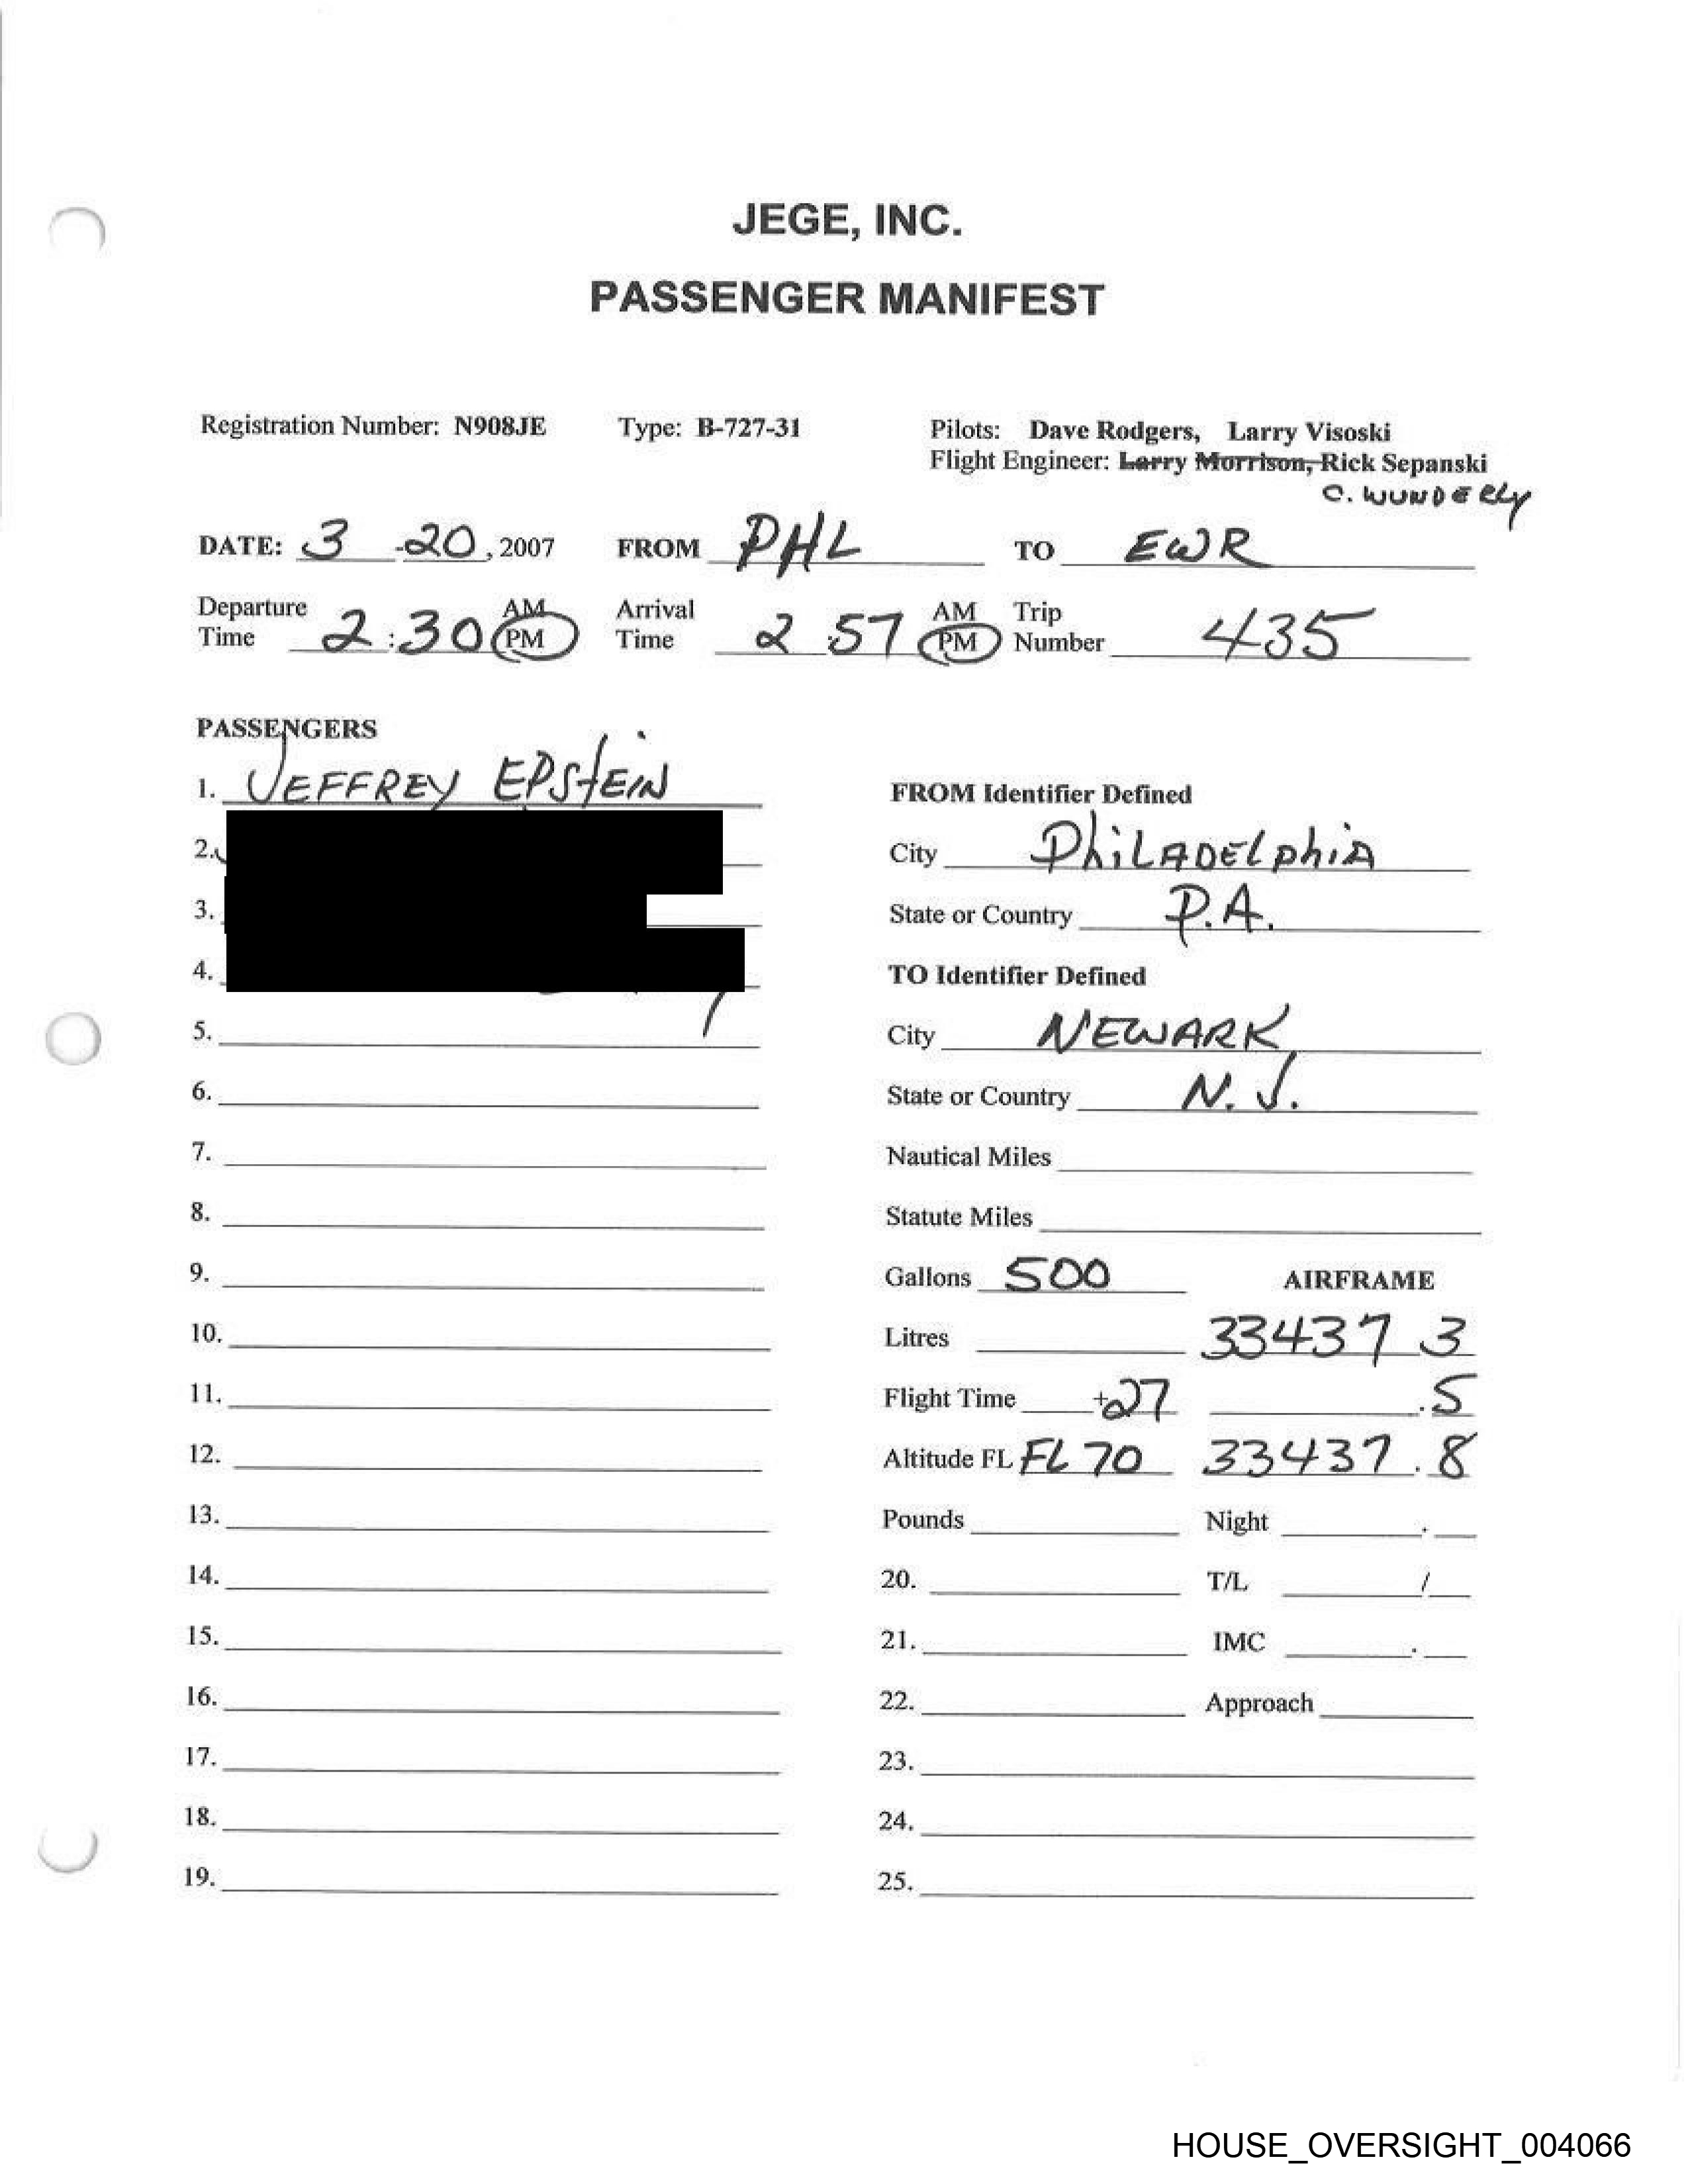 JEGE, INC.
PASSENGER MANIFEST
Registration Number: N908JE Type: B-727-31 Pilots: Dave Rodgers, Larry Visoski
Flight Engineer: Larry Morrison, Rick Sepanski
C. WUNDERLY
DATE: 3 -20, 2007 FROM PHL TO EWR
Departure Time 2:30 AM PM Arrival Time 2:57 AM PM Trip Number 435
PASSENGERS
1. JEFFREY EPSTEIN
2.
3.
4.
5.
6.
7.
8.
9.
10.
11.
12.
13.
14.
15.
16.
17.
18.
19.
FROM Identifier Defined
City PHILADELPHIA
State or Country P.A.
TO Identifier Defined
City NEWARK
State or Country N.J.
Nautical Miles
Statute Miles
Gallons 500 AIRFRAME
Litres 33437 3
Flight Time +27 .5
Altitude FL FL 70 33437.8
Pounds Night .
20. T/L /
21. IMC .
22. Approach
23.
24.
25.
HOUSE_OVERSIGHT_004066